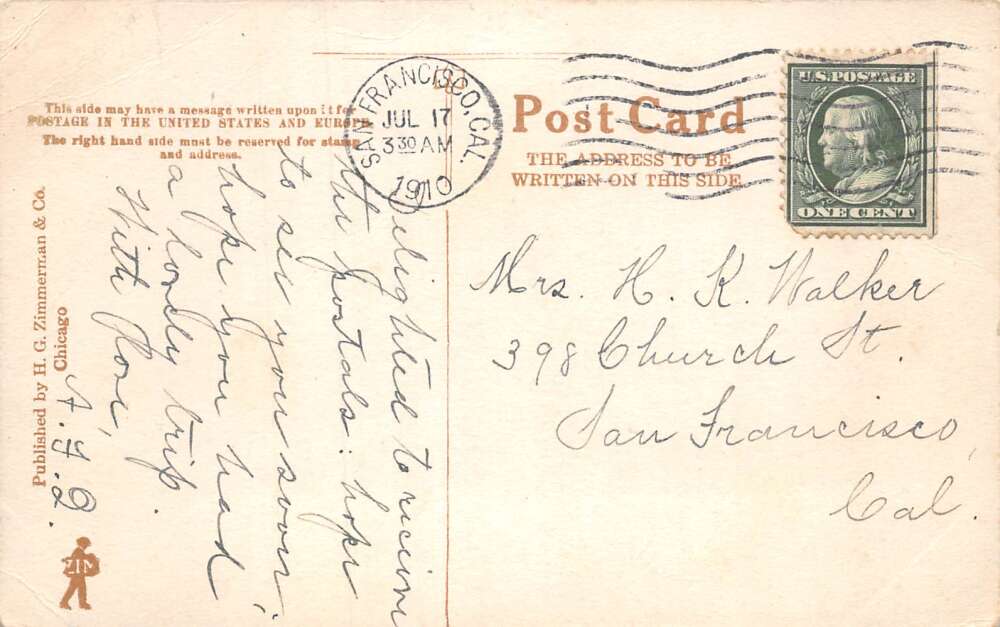 This side may have a message written upon it for
POSTAGE IN THE UNITED STATES AND EUROPE
The right hand side must be reserved for stamp
and address.
SAN FRANCISCO, CAL.
JUL 17
3 30 AM
1910
Post Card
THE ADDRESS TO BE
WRITTEN ON THIS SIDE
U.S. POSTAGE
ONE CENT
Delighted to recieve
the postals: hope
to see you soon.
hope you had
a lovely trip.
With love,
A. J. D.
Mrs. H. K. Walker
398 Church St.
San Francisco,
Cal.
Published by H. G. Zimmerman & Co.
Chicago
ZIM